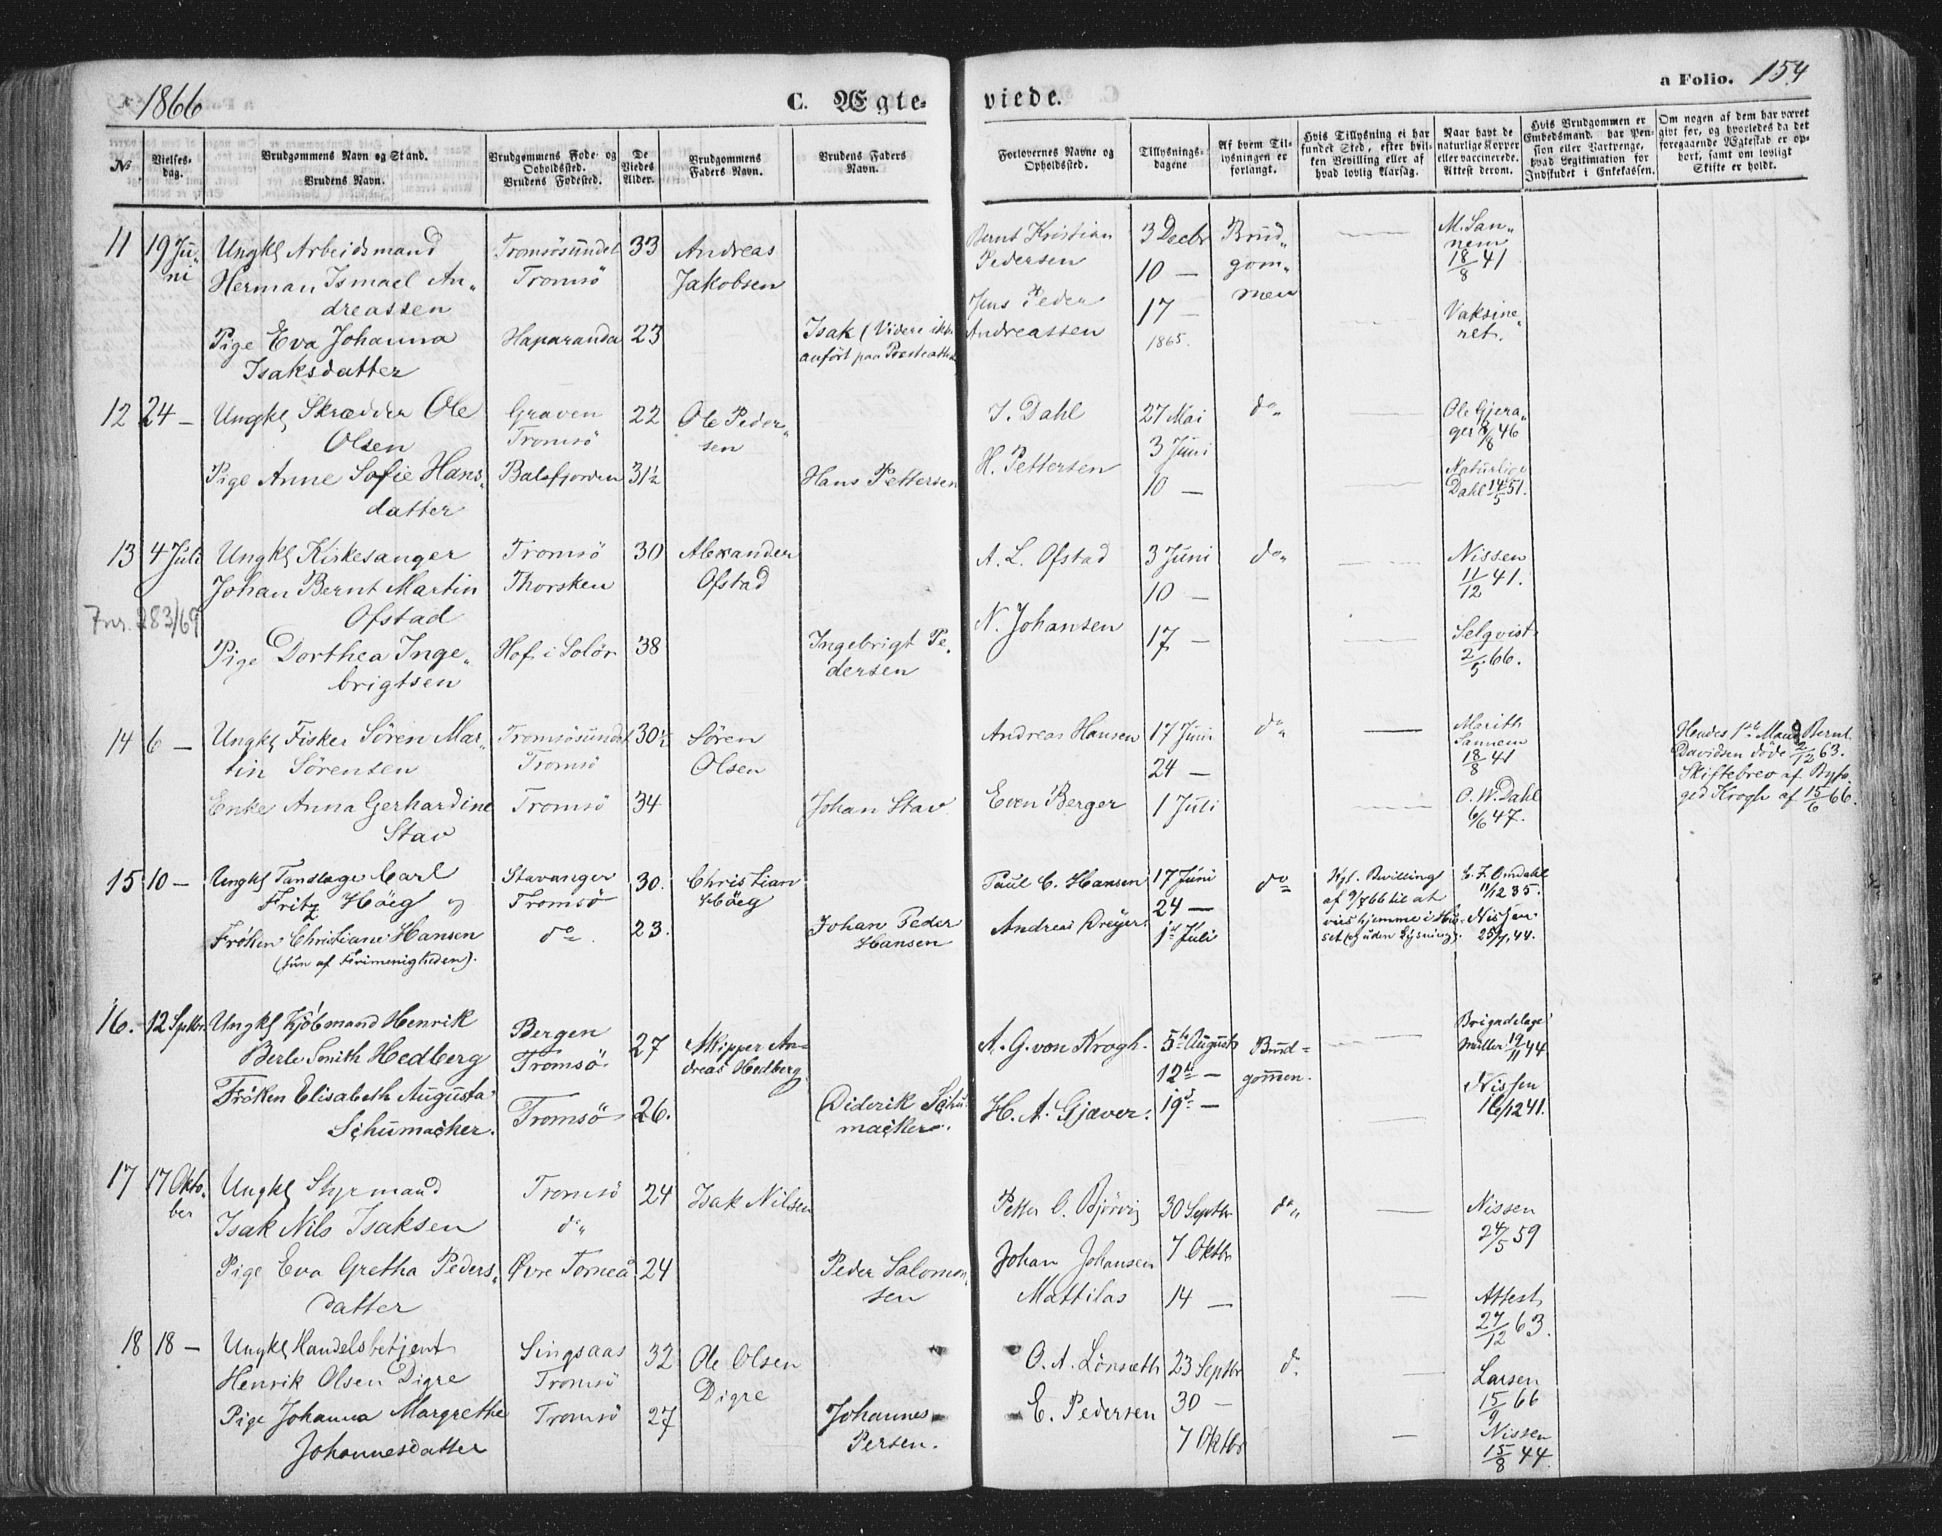 1866
C. Ægte-
viede.
a Folio. 154
No
Vielses-
dag.
Brudgommens Navn og Stand.
Brudens Navn.
Brudgommens Føde- og
Opholdssted.
Brudens Fødested.
De
Viedes
Alder.
Brudgommens
Faders Navn.
Brudens Faders
Navn.
Forlovernes Navne og
Opholdssted.
Tillysnings-
dagene
Af hvem Til-
lysningen er
forlangt.
Hvis Tillysning ei har
fundet Sted, efter hvil-
ken Bevilling eller af
hvad lovlig Aarsag.
Naar havt de
naturlige Kopper
eller vaccinerede.
Attest derom.
Hvis Brudgommen er
Embedsmand, har Pen-
sion eller Vartpenge,
hvad Legitimation for
Indskudet i Enkekassen.
Om nogen af dem har været
gift før, og hvorledes da det
foregaaende Ægteskab er op-
hørt, samt om lovligt
Skifte er holdt.
11
19 Ju-
ni
Ungkl Arbeidsmand
Herman Ismael An-
dreassen
Pige Eva Johanna
Isaksdatter
Tromsösundet
Tromsö
Haparanda
33
23
Andreas
Jakobsen
Isak (Videre ikke
anfört paa
Bernt Kristian
Pedersen
Jens Peder
Andreassen
3 Decbr
10 —
17 —
1865.
Brud-
gom-
men
M. San-
nem
18/8 41
Vaksine-
ret.
12
24 —
Ungkl Skrædder Ole
Olsen
Pige Anne Sofie Hans-
datter
Graven
Tromsö
Balsfjorden
22
31½
Ole Peder-
sen
Hans Pettersen
J. Dahl
H. Pettersen
27 Mai
3 Juni
10 —
do
Ole Gjera-
ger /8 46
Naturlige
Dahl 14/5 51.
13
4 Juli
Ungkl Kirkesanger
Johan Bernt Martin
Ofstad
Fnr. 283/69
Pige Dorthea Inge-
brigtsen
Tromsö
Thorsken
Hof i Solör
30
38
Alexander
Ofstad
Ingebrigt Pe-
dersen
A. L. Ofstad
N. Johansen
3 Juni
10 —
17 —
do
Nissen
11/12 41.
Selqvist
2/5 66.
14
6 —
Ungkl Fisker Sören Mar-
tin Sörensen
Enke Anna Gerhardine
Stav
Tromsösundet
Tromsö
Tromsö
30½
34
Sören
Olsen
Johan Stav
Andreas Hansen
Even Berger
17 Juni
24 —
1 Juli
do
Marith
Sannem
18/8 41
O. W. Dahl
6/6 47.
Hendes 1ste Mand Bernt
Davidsen döde 2/12 63.
Skiftebrev af Byfo-
ged Krogh af 15/6 66.
15
10 —
Ungkl Tandlæge Carl
Fritz Höeg og
Fröken Christiane Hansen
(hun af Frimenigheden).
Stavanger
Tromsö
do
30.
23.
Christian
Höeg
Johan Peder
Hansen
Paul C. Hansen
Andreas Dreyer.
17 Juni
24 —
1ste Juli
do
Kgl. Bevilling
af 9/7 66 til at
vies hjemme i Hu-
set (og uden Lysning).
C. F. Omdahl
11/12 35.
Nissen
25/7, 44.
16.
12 Septbr.
Ungkl Kjöbmand Henrik
Berle Smith Hedberg
Fröken Elisabeth Augusta
Schumacher.
Bergen
Tromsö
Tromsö
27
26.
Skipper An-
dreas Hedberg.
Diderik Schu-
macher.
A. G. von Krogh.
H. A. Gjæver.
5te Augusts
12te —
19de —
Brud-
gommen.
Brigadelæge
Müller 19/11 44
Nissen
16/12 41.
17
17 Okto-
ber
Ungkl Styrmand
Isak Nils Isaksen
Pige Eva Gretha Peders-
datter
Tromsö
do
Øvre Torneå
24
24
Isak Nilsen
Peder Salomon-
sen
Petter O. Björvig
Johan Johansen
Mattilas
30 Septbr
7 Oktbr
14 —
do
Nissen
24/5 59
Attest
27/12 63.
18
18 —
Ungkl Handelsbetjent
Henrik Olsen Digre
Pige Johanna Margrethe
Johannesdatter
Singsaas
Tromsö
Tromsö
32
27
Ole Olsen
Digre
Johannes
Persen.
O. A. Lönseth
E. Pedersen
23 Septbr
30 —
7 Oktbr
do
Larsen
15/9 66
Nissen
15/8 44.